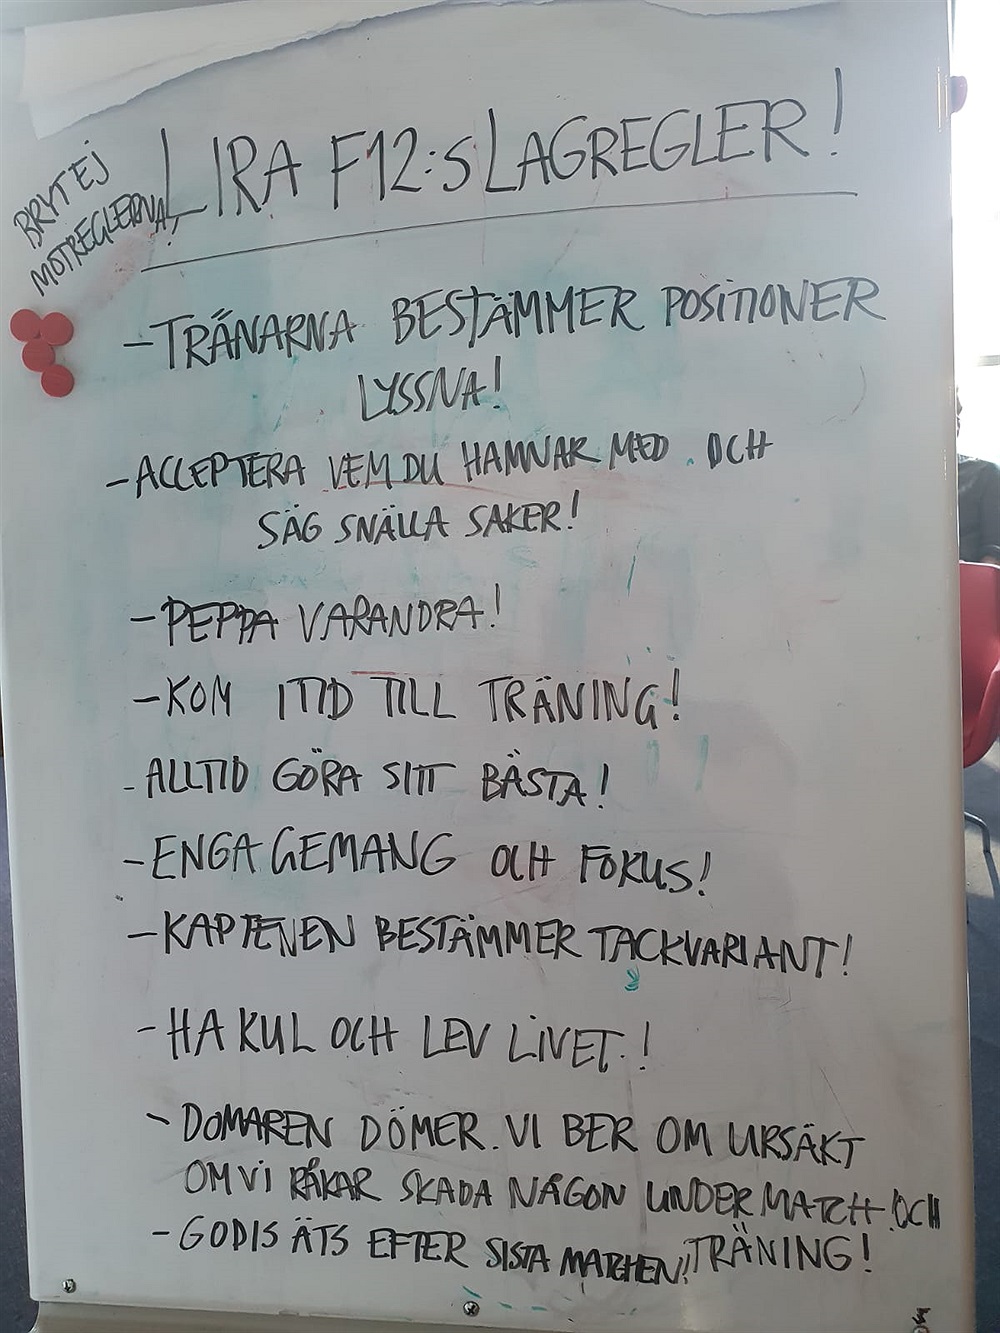 LIRA F12:S LAGREGLER!
BRYT EJ
MOT REGLERNA!
- TRÄNARNA BESTÄMMER POSITIONER
LYSSNA!
- ACCEPTERA VEM DU HAMNAR MED OCH
SÄG SNÄLLA SAKER!
- PEPPA VARANDRA!
- KOM I TID TILL TRÄNING!
- ALLTID GÖRA SITT BÄSTA!
- ENGAGEMANG OCH FOKUS!
- KAPTENEN BESTÄMMER TACKVARIANT!
- HA KUL OCH LEV LIVET!
- DOMAREN DÖMER. VI BER OM URSÄKT
OM VI RÅKAR SKADA NÅGON UNDER MATCH OCH
TRÄNING!
- GODIS ÄTS EFTER SISTA MATCHEN!